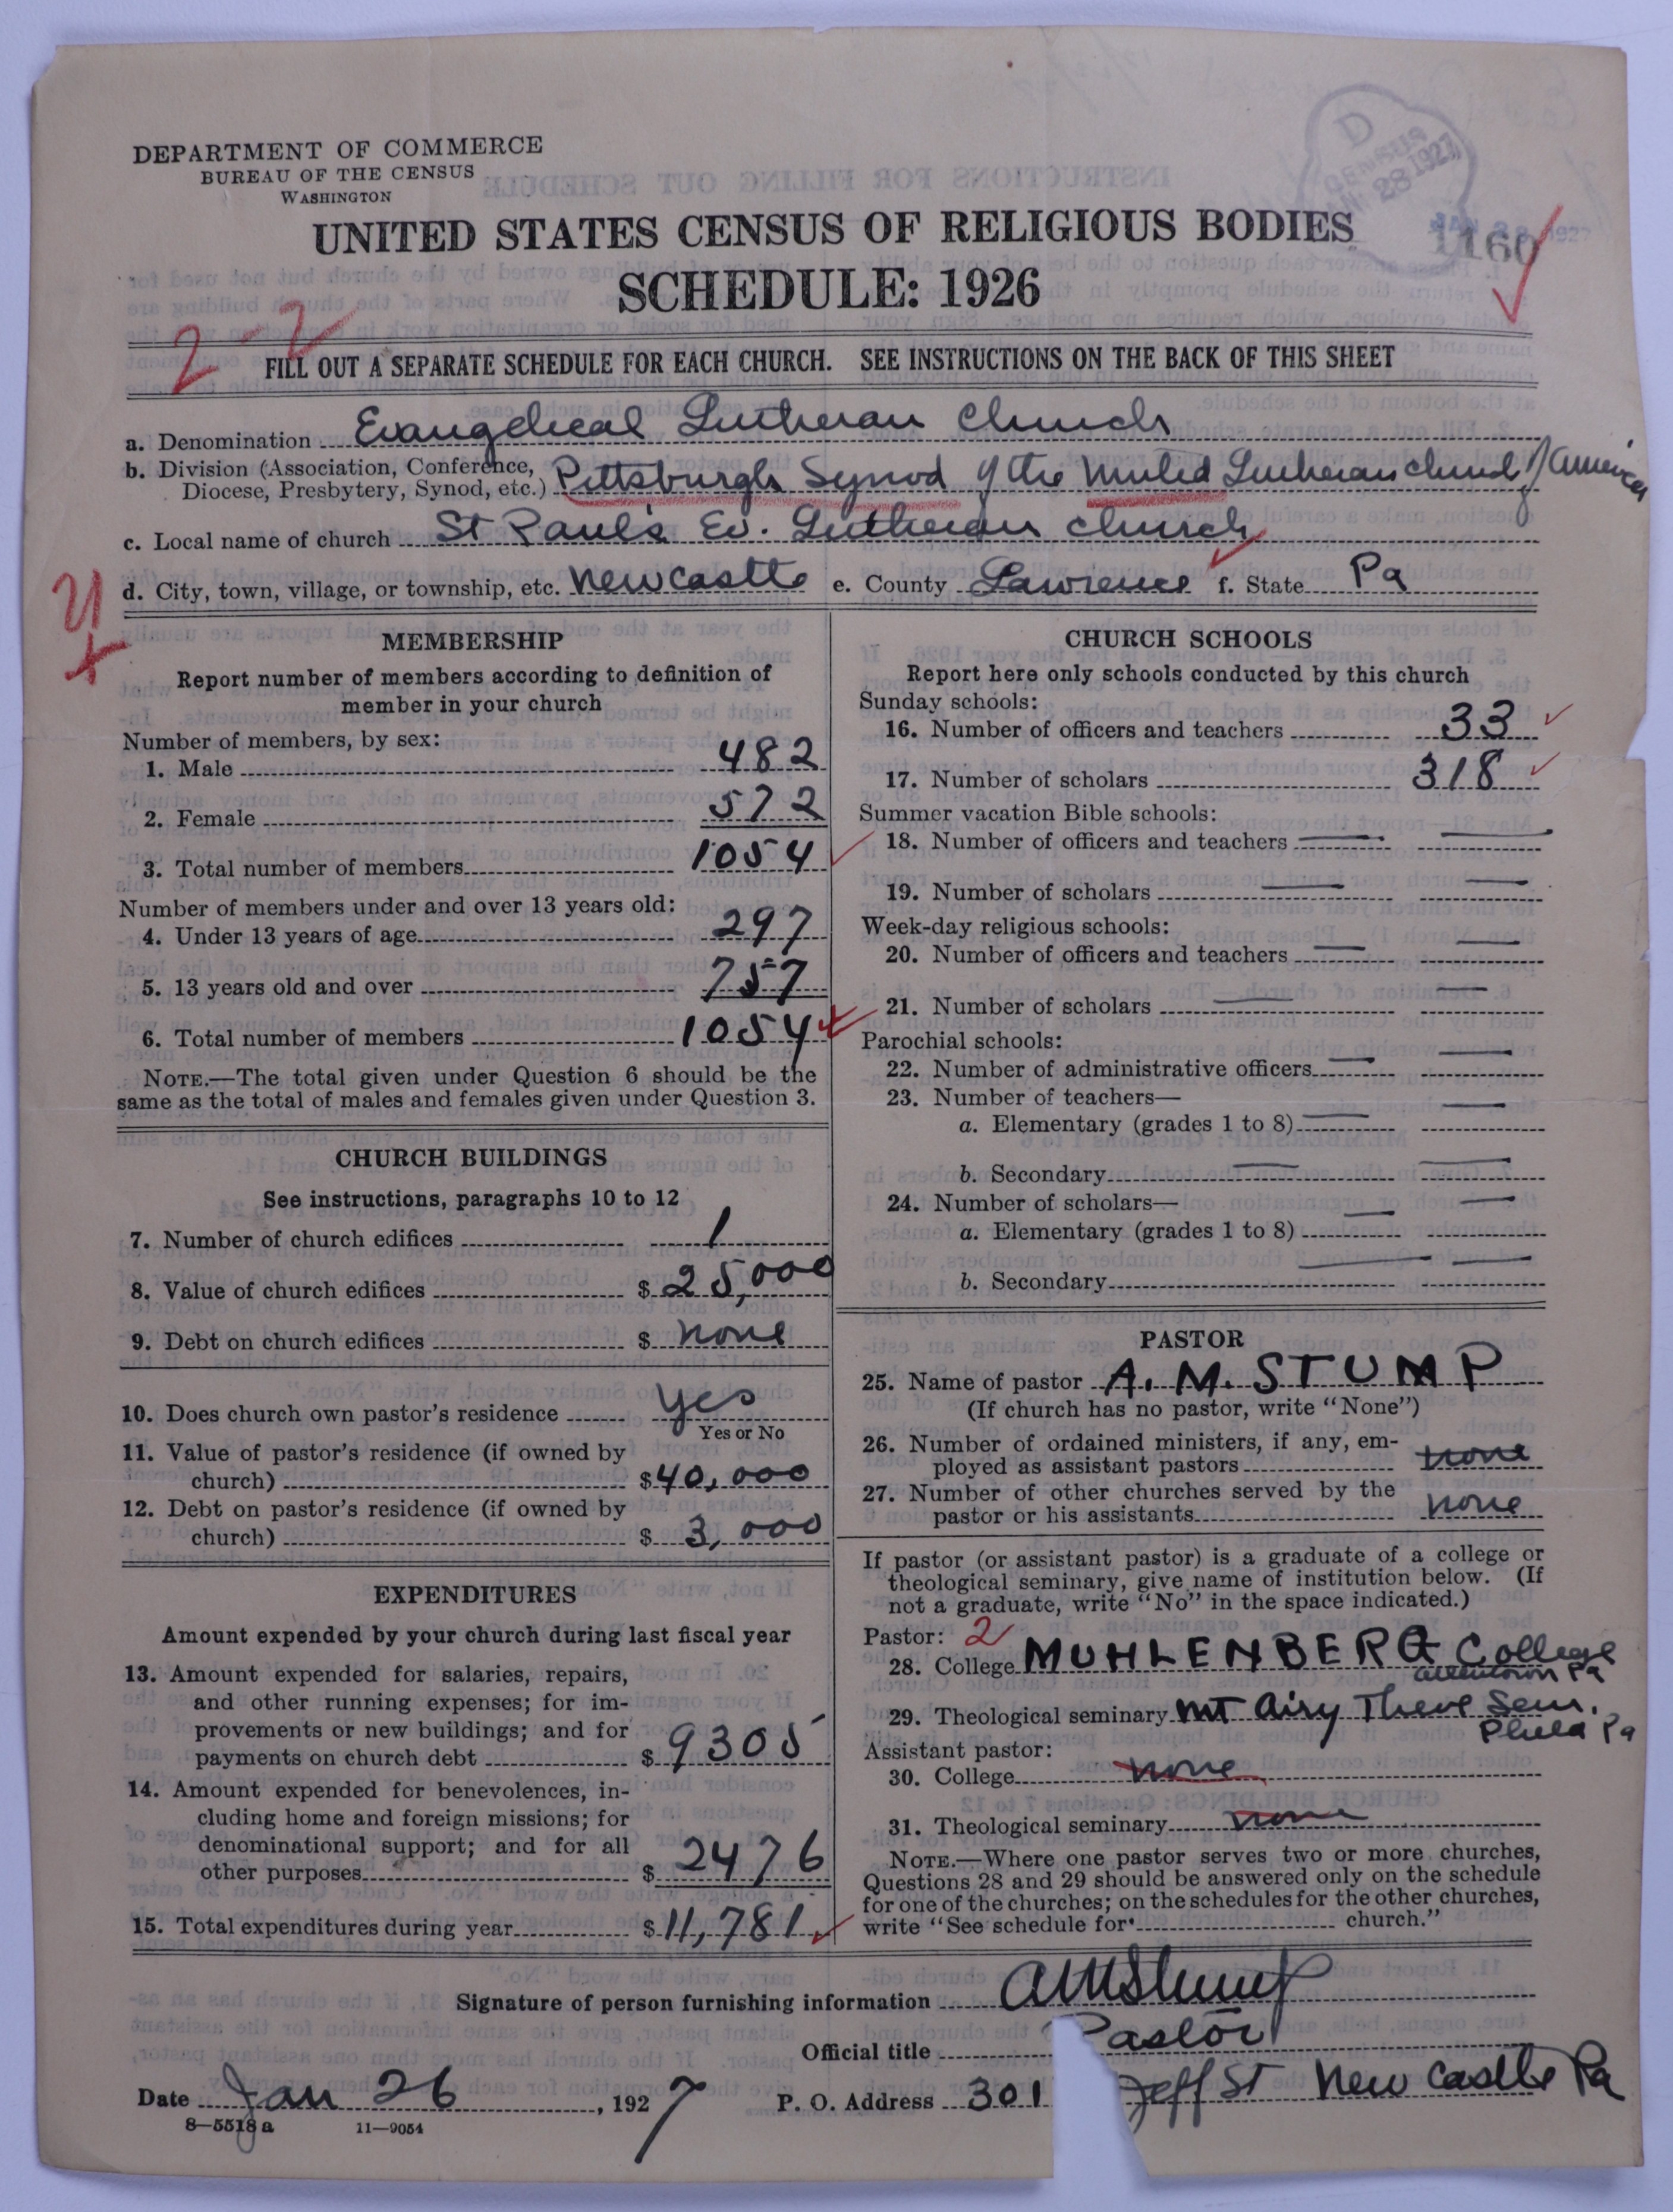 DEPARTMENT OF COMMERCE
BUREAU OF THE CENSUS
WASHINGTON
D
CENSUS
JAN 28 1927
JAN 28 1927
1160
UNITED STATES CENSUS OF RELIGIOUS BODIES
SCHEDULE: 1926
2-2
FILL OUT A SEPARATE SCHEDULE FOR EACH CHURCH. SEE INSTRUCTIONS ON THE BACK OF THIS SHEET
a. Denomination Evangelical Lutheran Church
b. Division (Association, Conference, Diocese, Presbytery, Synod, etc.) Pittsburgh Synod of the United Lutheran Church of America
c. Local name of church St Paul's Ev. Lutheran Church
d. City, town, village, or township, etc. New Castle e. County Lawrence f. State Pa
MEMBERSHIP
Report number of members according to definition of
member in your church
Number of members, by sex:
1. Male 482
2. Female 572
3. Total number of members 1054
Number of members under and over 13 years old:
4. Under 13 years of age 297
5. 13 years old and over 757
6. Total number of members 1054
NOTE.—The total given under Question 6 should be the
same as the total of males and females given under Question 3.
CHURCH BUILDINGS
See instructions, paragraphs 10 to 12
7. Number of church edifices 1
8. Value of church edifices $ 25,000
9. Debt on church edifices $ none
10. Does church own pastor's residence Yes
Yes or No
11. Value of pastor's residence (if owned by
church) $ 40,000
12. Debt on pastor's residence (if owned by
church) $ 3,000
EXPENDITURES
Amount expended by your church during last fiscal year
13. Amount expended for salaries, repairs,
and other running expenses; for im-
provements or new buildings; and for
payments on church debt $ 9305
14. Amount expended for benevolences, in-
cluding home and foreign missions; for
denominational support; and for all
other purposes $ 2476
15. Total expenditures during year $ 11,781
CHURCH SCHOOLS
Report here only schools conducted by this church
Sunday schools:
16. Number of officers and teachers 33
17. Number of scholars 318
Summer vacation Bible schools:
18. Number of officers and teachers
19. Number of scholars
Week-day religious schools:
20. Number of officers and teachers
21. Number of scholars
Parochial schools:
22. Number of administrative officers
23. Number of teachers—
a. Elementary (grades 1 to 8)
b. Secondary
24. Number of scholars—
a. Elementary (grades 1 to 8)
b. Secondary
PASTOR
25. Name of pastor A. M. STUMP
(If church has no pastor, write "None")
26. Number of ordained ministers, if any, em-
ployed as assistant pastors none
27. Number of other churches served by the
pastor or his assistants none
If pastor (or assistant pastor) is a graduate of a college or
theological seminary, give name of institution below. (If
not a graduate, write "No" in the space indicated.)
Pastor: 2
28. College MUHLENBERG College
Allentown Pa
29. Theological seminary Mt Airy Theol Sem.
Phila Pa
Assistant pastor:
30. College none
31. Theological seminary none
NOTE.—Where one pastor serves two or more churches,
Questions 28 and 29 should be answered only on the schedule
for one of the churches; on the schedules for the other churches,
write "See schedule for church."
Signature of person furnishing information AMStump
Official title Pastor
Date Jan 26, 1927 P. O. Address 301 Jeff St New Castle Pa
8—5518 a 11—9054